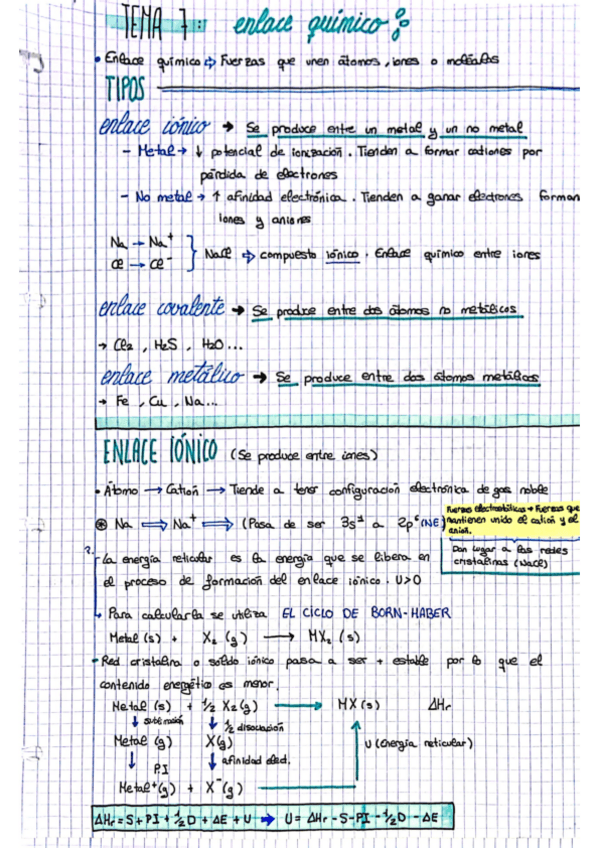 TEMA 7: enlace químico
• Enlace químico ⇨ Fuerzas que unen átomos, iones o moléculas
TIPOS
enlace iónico → Se produce entre un metal y un no metal
- Metal → ↓ potencial de ionización. Tienden a formar cationes por
pérdida de electrones
- No metal → ↑ afinidad electrónica. Tienden a ganar electrones forman
iones y aniones
Na → Na⁺
Cl → Cl⁻
NaCl ⇨ compuesto iónico. Enlace químico entre iones
enlace covalente → Se produce entre dos átomos no metálicos
→ Cl₂, H₂S, H₂O...
enlace metálico → Se produce entre dos átomos metálicos
→ Fe, Cu, Na...
ENLACE IÓNICO (Se produce entre iones)
• Átomo → Catión → Tiende a tener configuración electrónica de gas noble
⊛ Na ⇒ Na⁺ ⇒ (Pasa de ser 3s¹ a 2p⁶ (NE)
Fuerzas electrostáticas → Fuerzas que
mantienen unido el catión y el
anión.
Dan lugar a las redes
cristalinas (NaCl)
La energía reticular es la energía que se libera en
el proceso de formación del enlace iónico. U>0
Para calcularla se utiliza EL CICLO DE BORN-HABER
Metal (s) + X₂ (g) → MX₂ (s)
- Red cristalina o sólido iónico pasa a ser + estable por lo que el
contenido energético es menor.
Metal (s) + ½ X₂(g) → MX(s) ΔHr
↓ sublimación ↓ ½ disociación
Metal (g) X(g) U (Energía reticular)
↓ PI ↓ afinidad elect.
Metal⁺(g) + X⁻(g)
ΔHr = S + PI + ½D + ΔE + U → U = ΔHr - S - PI - ½D - ΔE